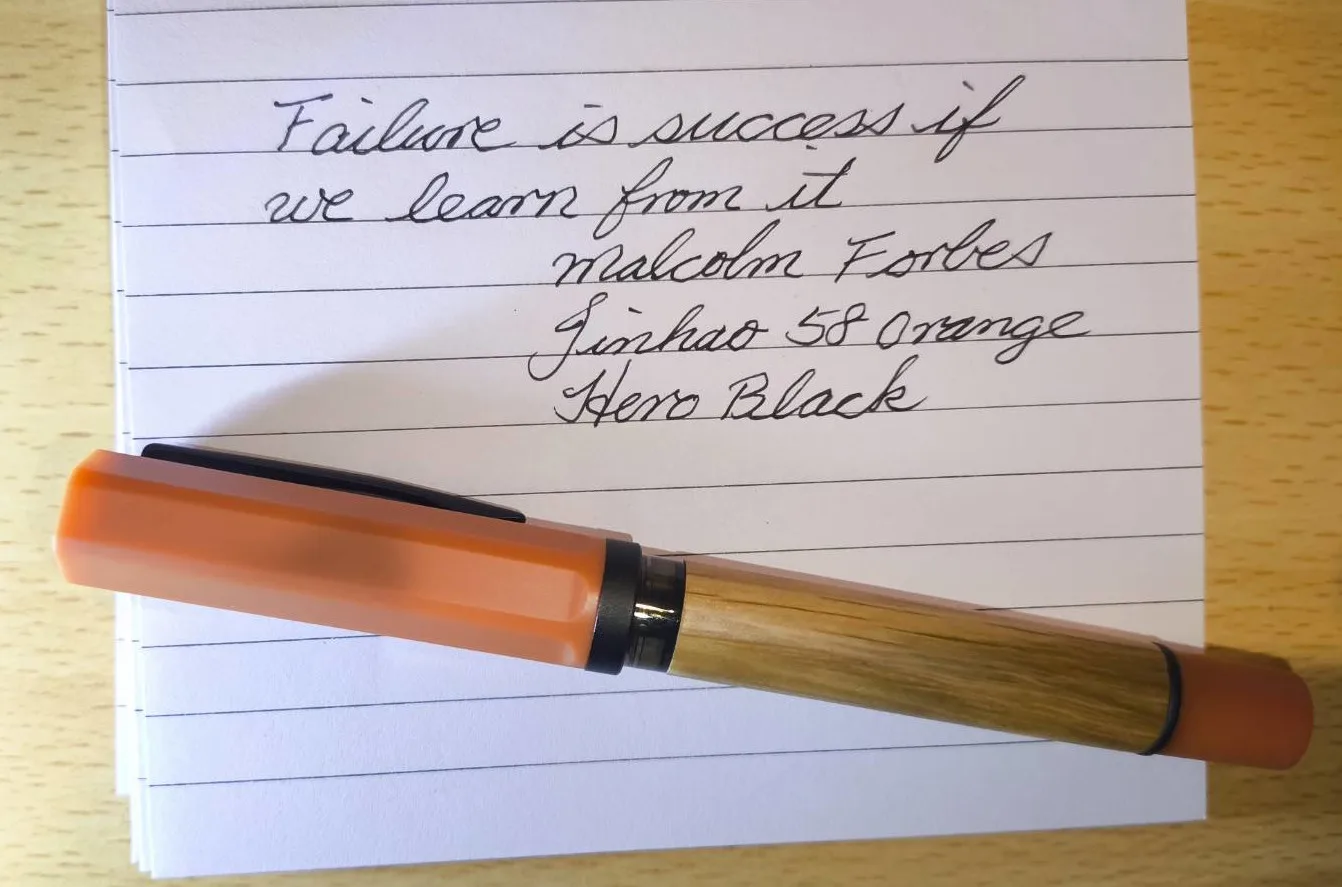 Failure is success if
we learn from it
Malcolm Forbes
Jinhao 58 Orange
Hero Black